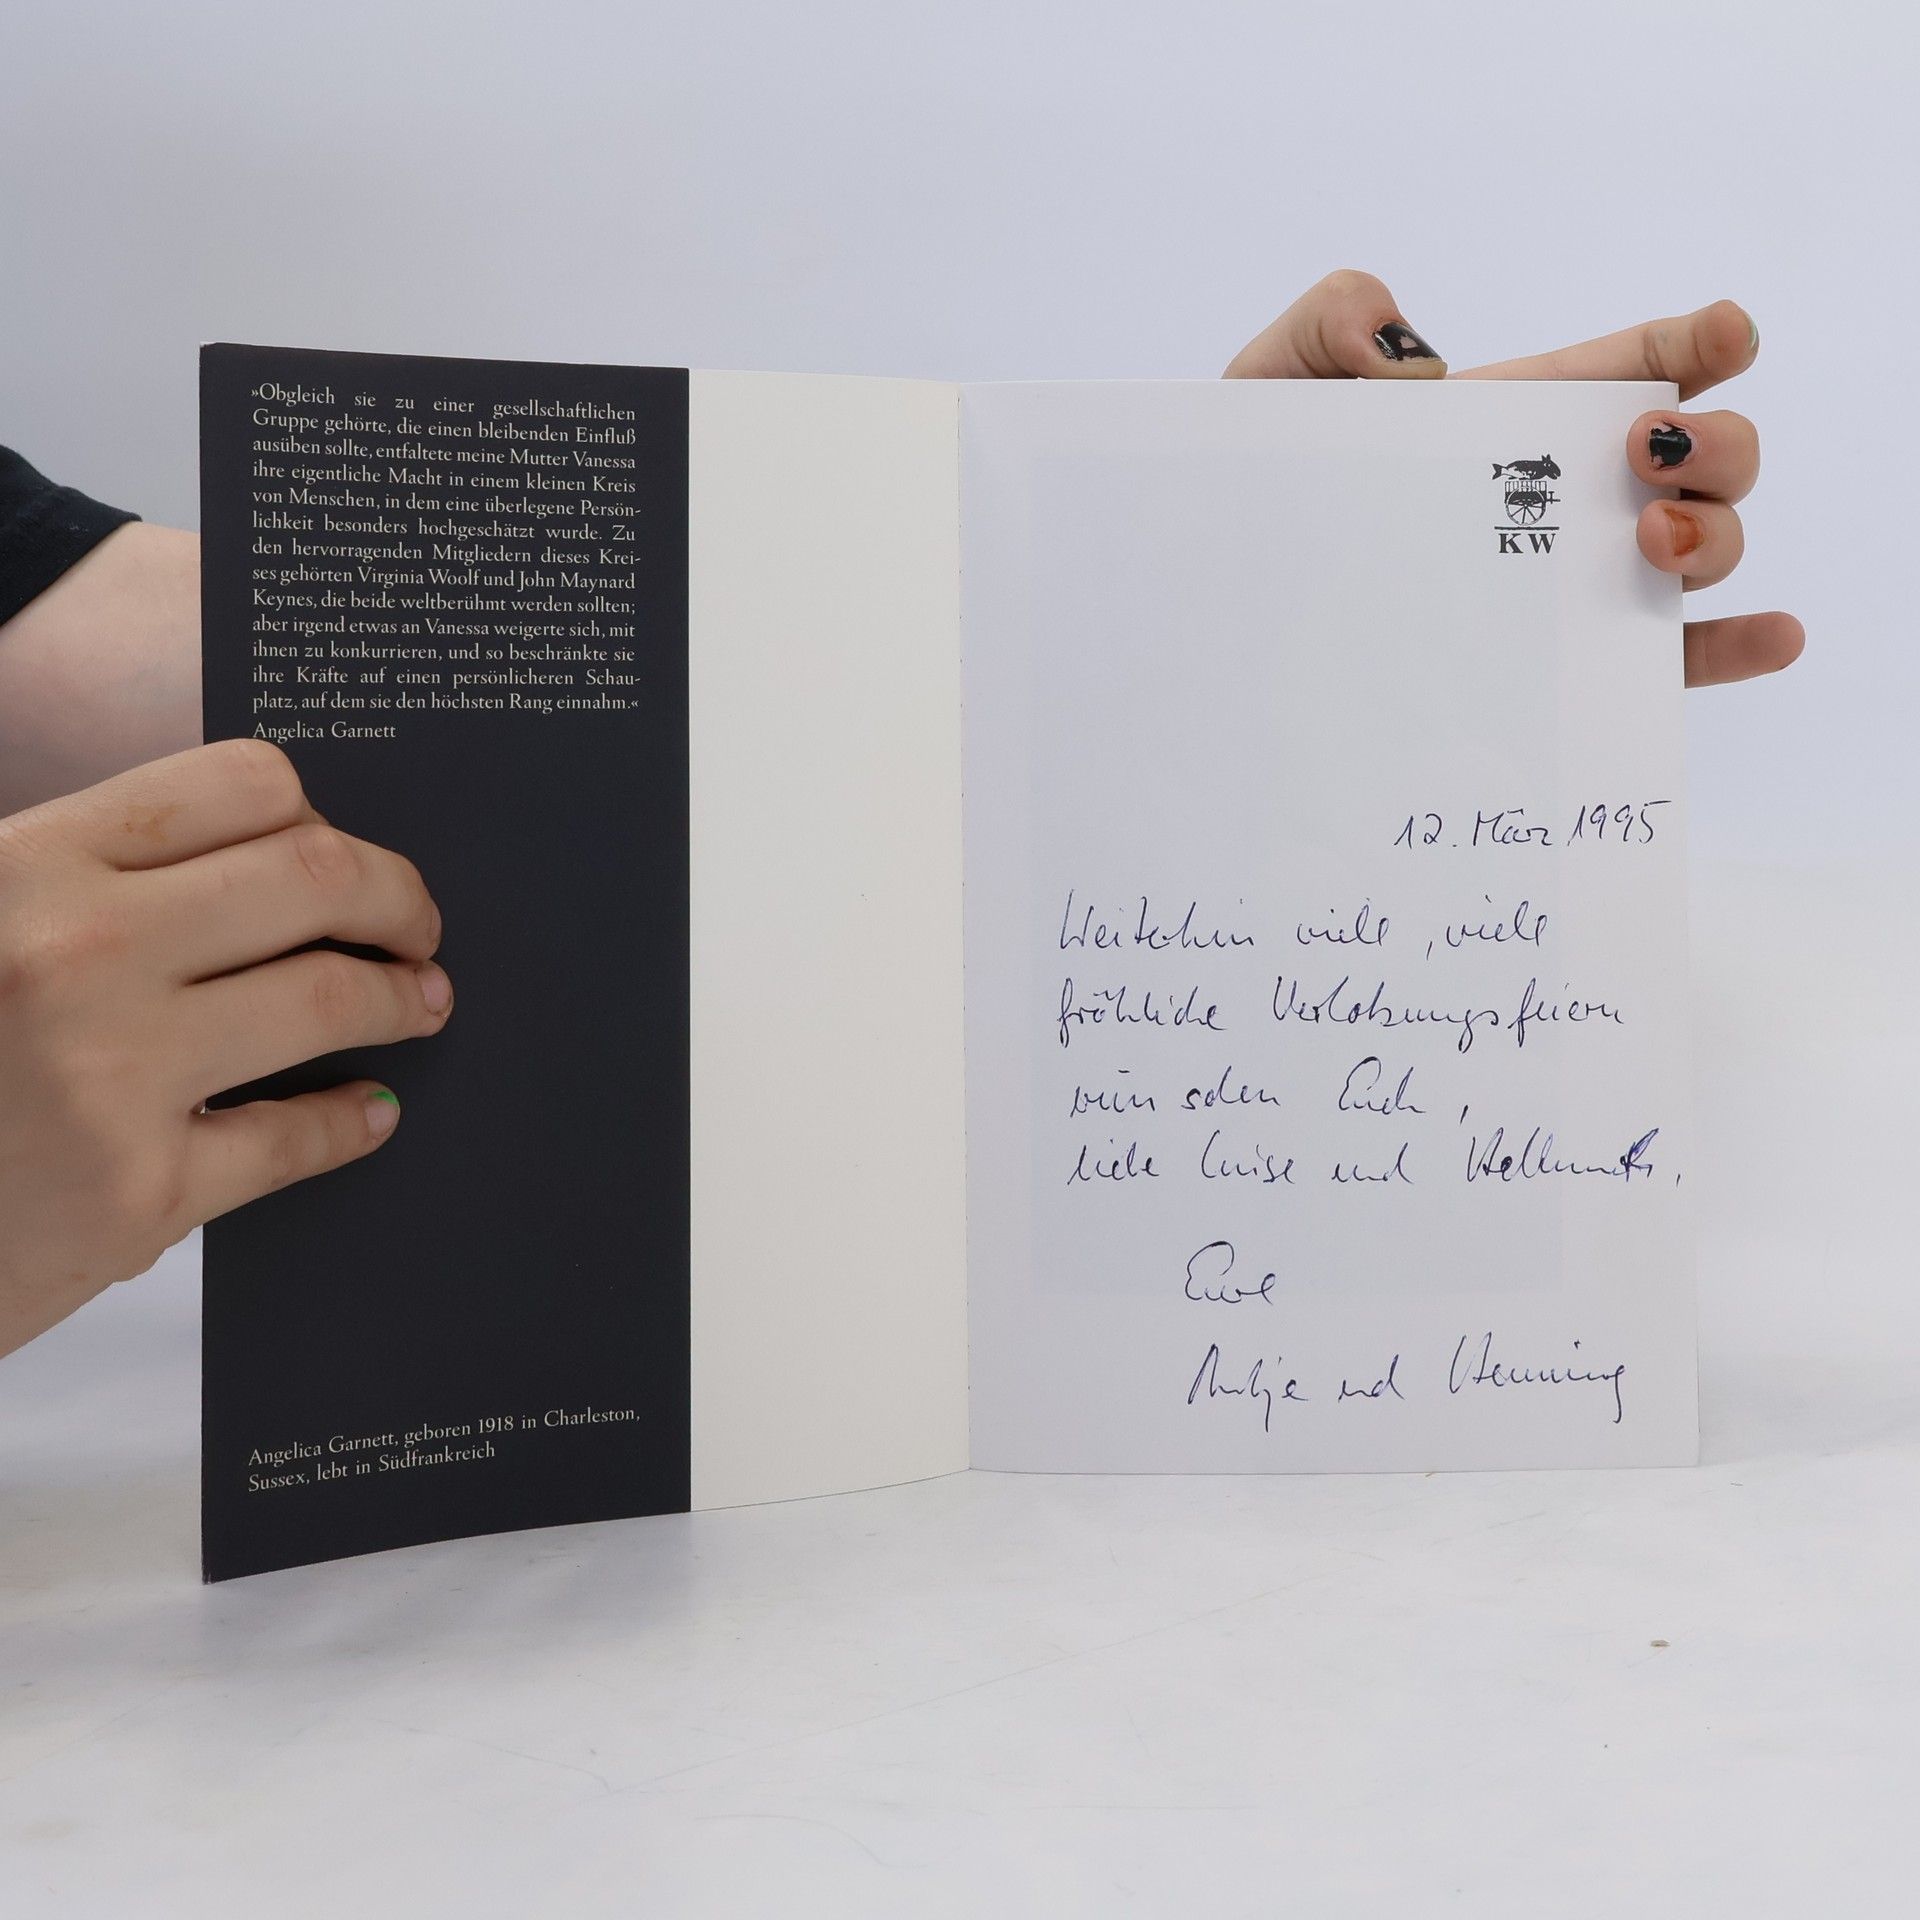 »Obgleich sie zu einer gesellschaftlichen
Gruppe gehörte, die einen bleibenden Einfluß
ausüben sollte, entfaltete meine Mutter Vanessa
ihre eigentliche Macht in einem kleinen Kreis
von Menschen, in dem eine überlegene Persön-
lichkeit besonders hochgeschätzt wurde. Zu
den hervorragenden Mitgliedern dieses Krei-
ses gehörten Virginia Woolf und John Maynard
Keynes, die beide weltberühmt werden sollten;
aber irgend etwas an Vanessa weigerte sich, mit
ihnen zu konkurrieren, und so beschränkte sie
ihre Kräfte auf einen persönlicheren Schau-
platz, auf dem sie den höchsten Rang einnahm.«
Angelica Garnett
Angelica Garnett, geboren 1918 in Charleston,
Sussex, lebt in Südfrankreich
KW
12. März 1995
Weiterhin viele, viele
fröhliche Verlobungsfeiern
wünschen Euch,
liebe Luise und
Eure
Antje und Henning